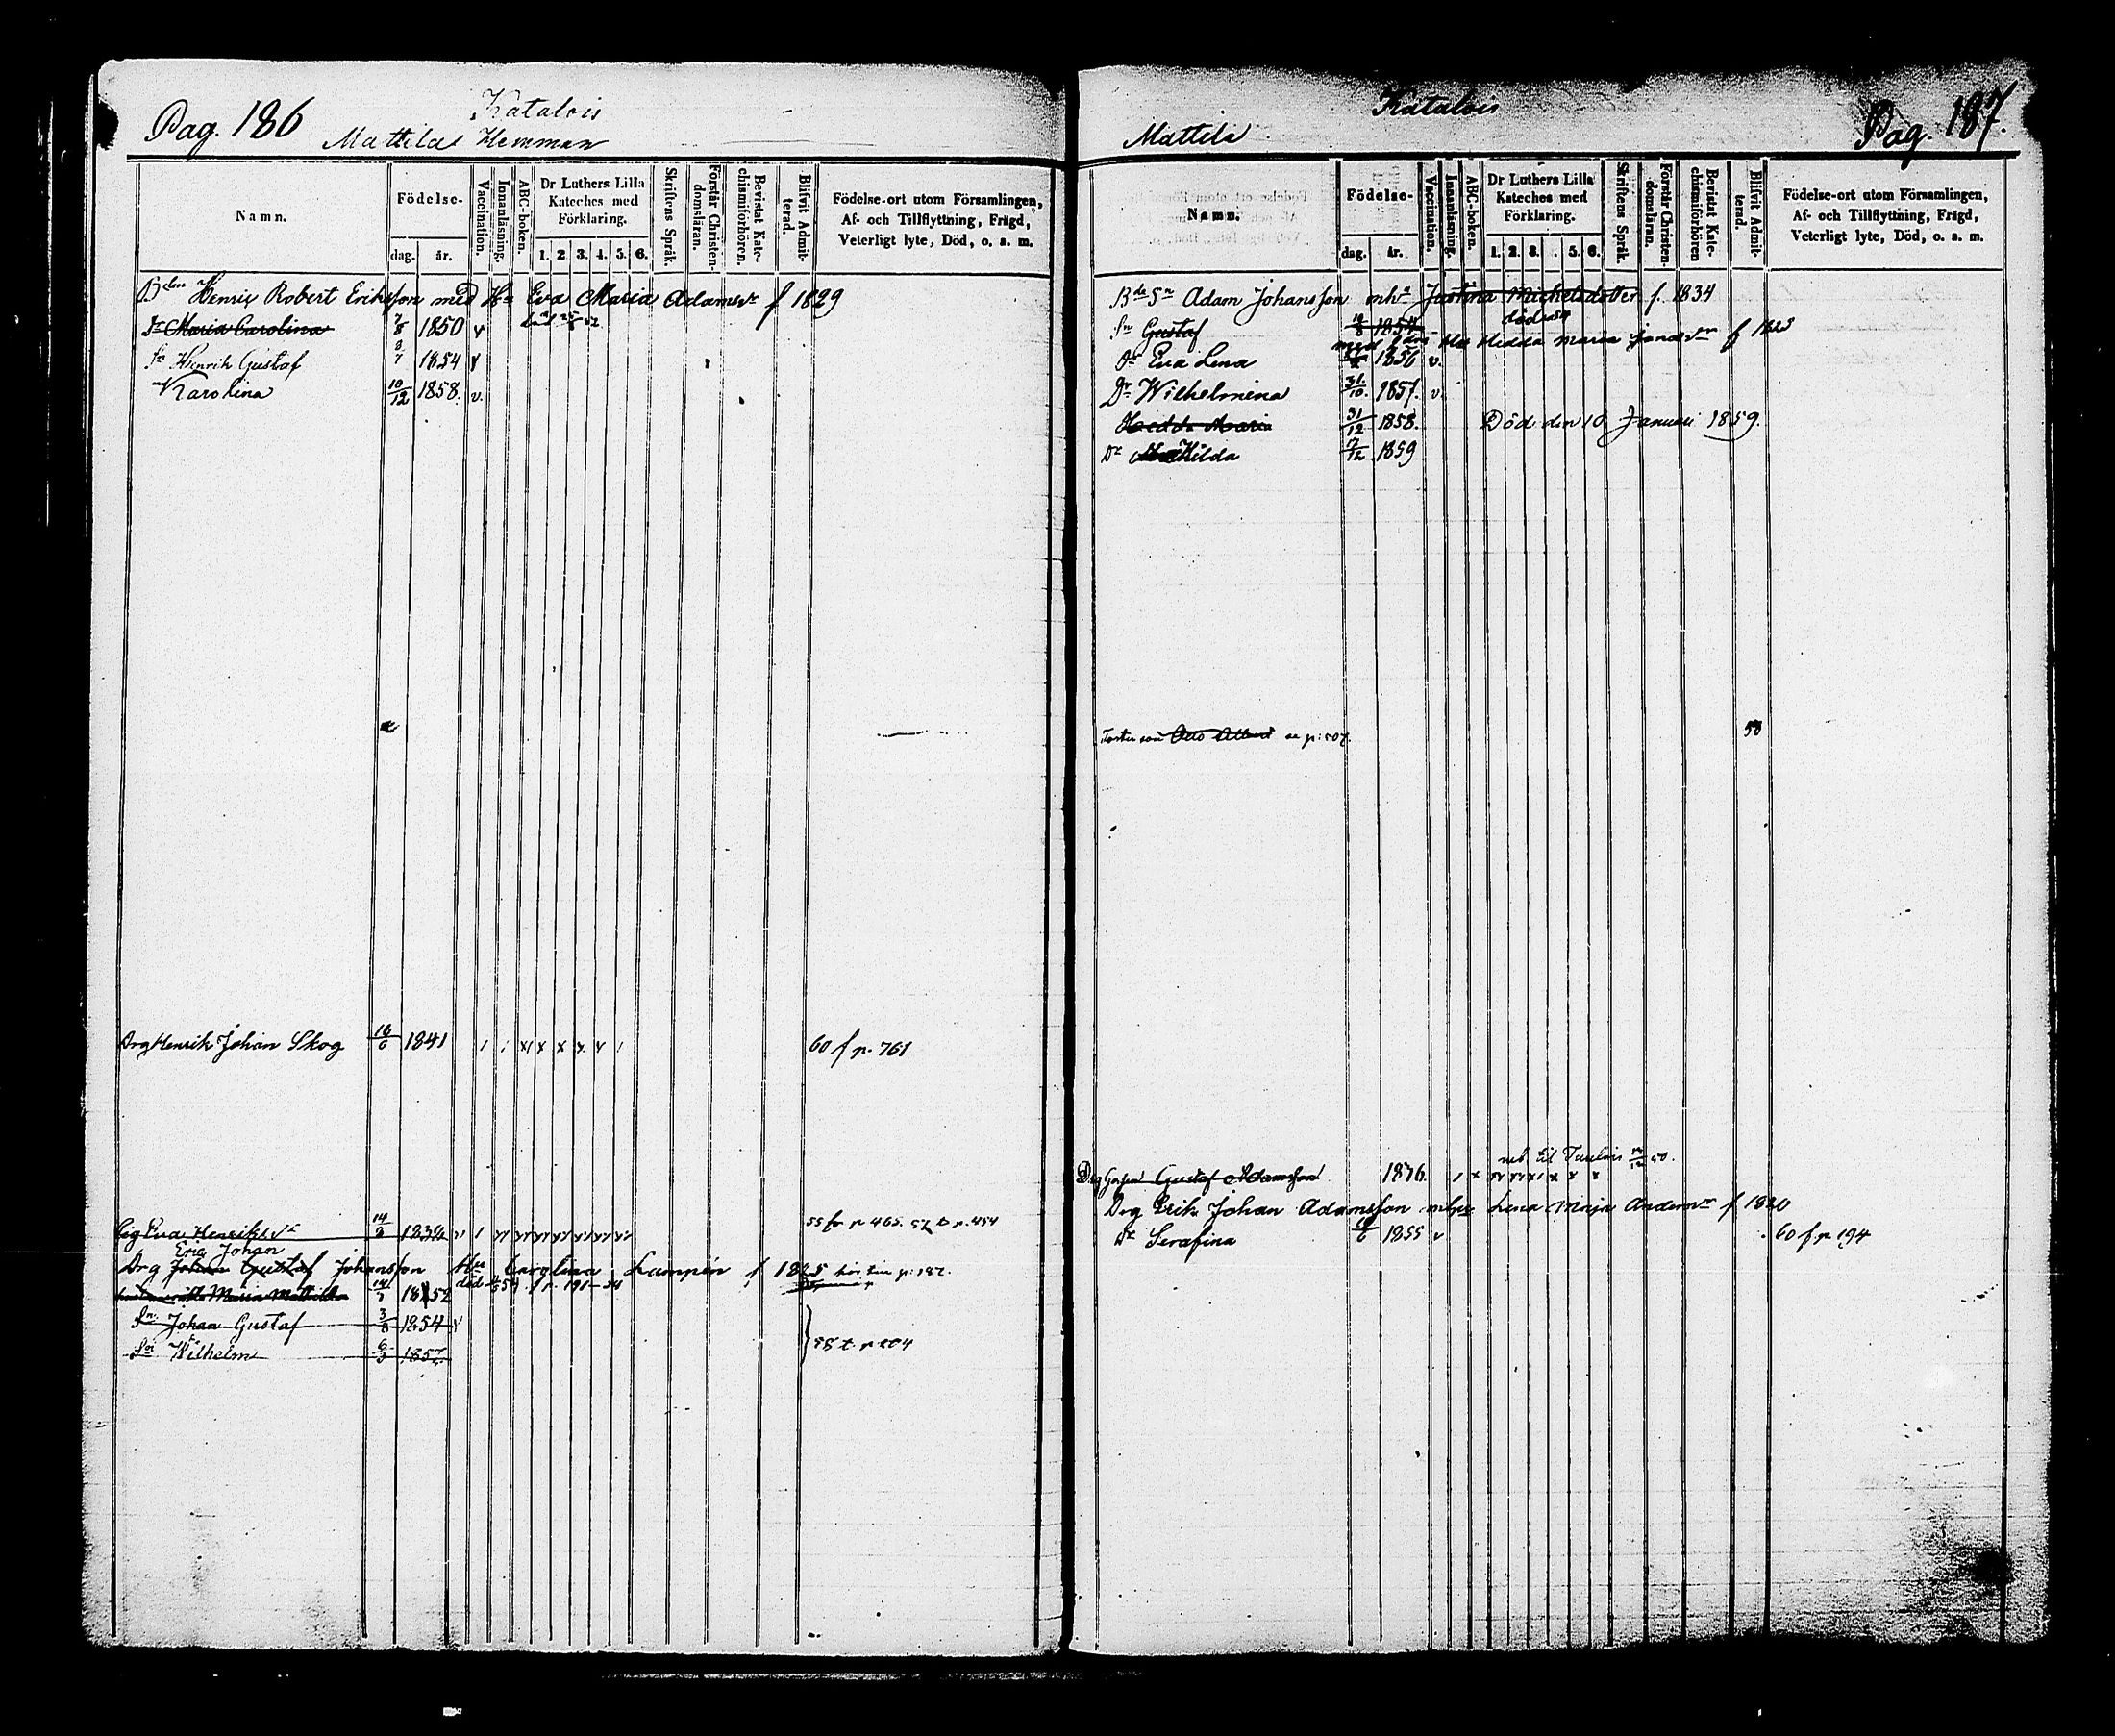 Pag. 186
Katalois
Mattilas Hemman
Namn.
Födelse-
dag.
år.
Vaccination.
Innanläsning.
ABC-boken.
Dr Luthers Lilla
Kateches med
Förklaring.
1. 2 3. 4. 5. 6.
Skriftens Språk.
Förstår Christen-
domsläran.
Bevistat Kate-
chismiförhören.
Blifvit Admit-
terad.
Födelse-ort utom Församlingen,
Af- och Tillflyttning, Frägd,
Veterligt lyte, Död, o. s. m.
Henric Robert Eriksson med Hu Eva Maria Adamsdr f 1829
Dr Maria Carolina 7/8 1850 v
Sn Henrik Gustaf 1854 v
Karolina 10/12 1858. v.
Drg Henrik Johan Skog 16/6 1841 60 f p. 761
Eva Henriksdr 14/2 55 fr p 465. 57 t. p. 454
Eric Johan
Drg Johan Gustaf Johansson Hu Carolina Lampén f 1825
Maria Mathilda 1852 f p. 191
Sn Johan Gustaf 3/8 1854 v
Wilhelm 6/3 1857. 58 t. p 204
Katalois
Mattila
Pag. 187.
Namn.
Födelse-
dag.
år.
Vaccination.
Innanläsning.
ABC-boken.
Dr Luthers Lilla
Kateches med
Förklaring.
1. 2. 3. . 5. 6.
Skriftens Språk.
Förstår Christen-
domsläran.
Bevistat Kate-
chismiförhören
Blifvit Admit-
terad.
Födelse-ort utom Församlingen,
Af- och Tillflyttning, Frägd,
Veterligt lyte, Död, o. s. m.
Adam Johansson mhu Justina Michelsdotter f. 1834
Sn Gustaf 1854
Hedda Maria f 1823
Dr Eva Lena 1856 v.
Dr Wilhelmina 31/10. 1857. v.
Hedda Maria 31/12 1858. Död den 10 Januari 1859.
Dr Mathilda 7/12 1859
Otto Albert se p: 507. 58
Gustaf Adamsson 1836
Drg Erik Johan Adamsson mhu Lena Maja Andersdr f 1820
Dr Serafina 1855 v 60 f p 194